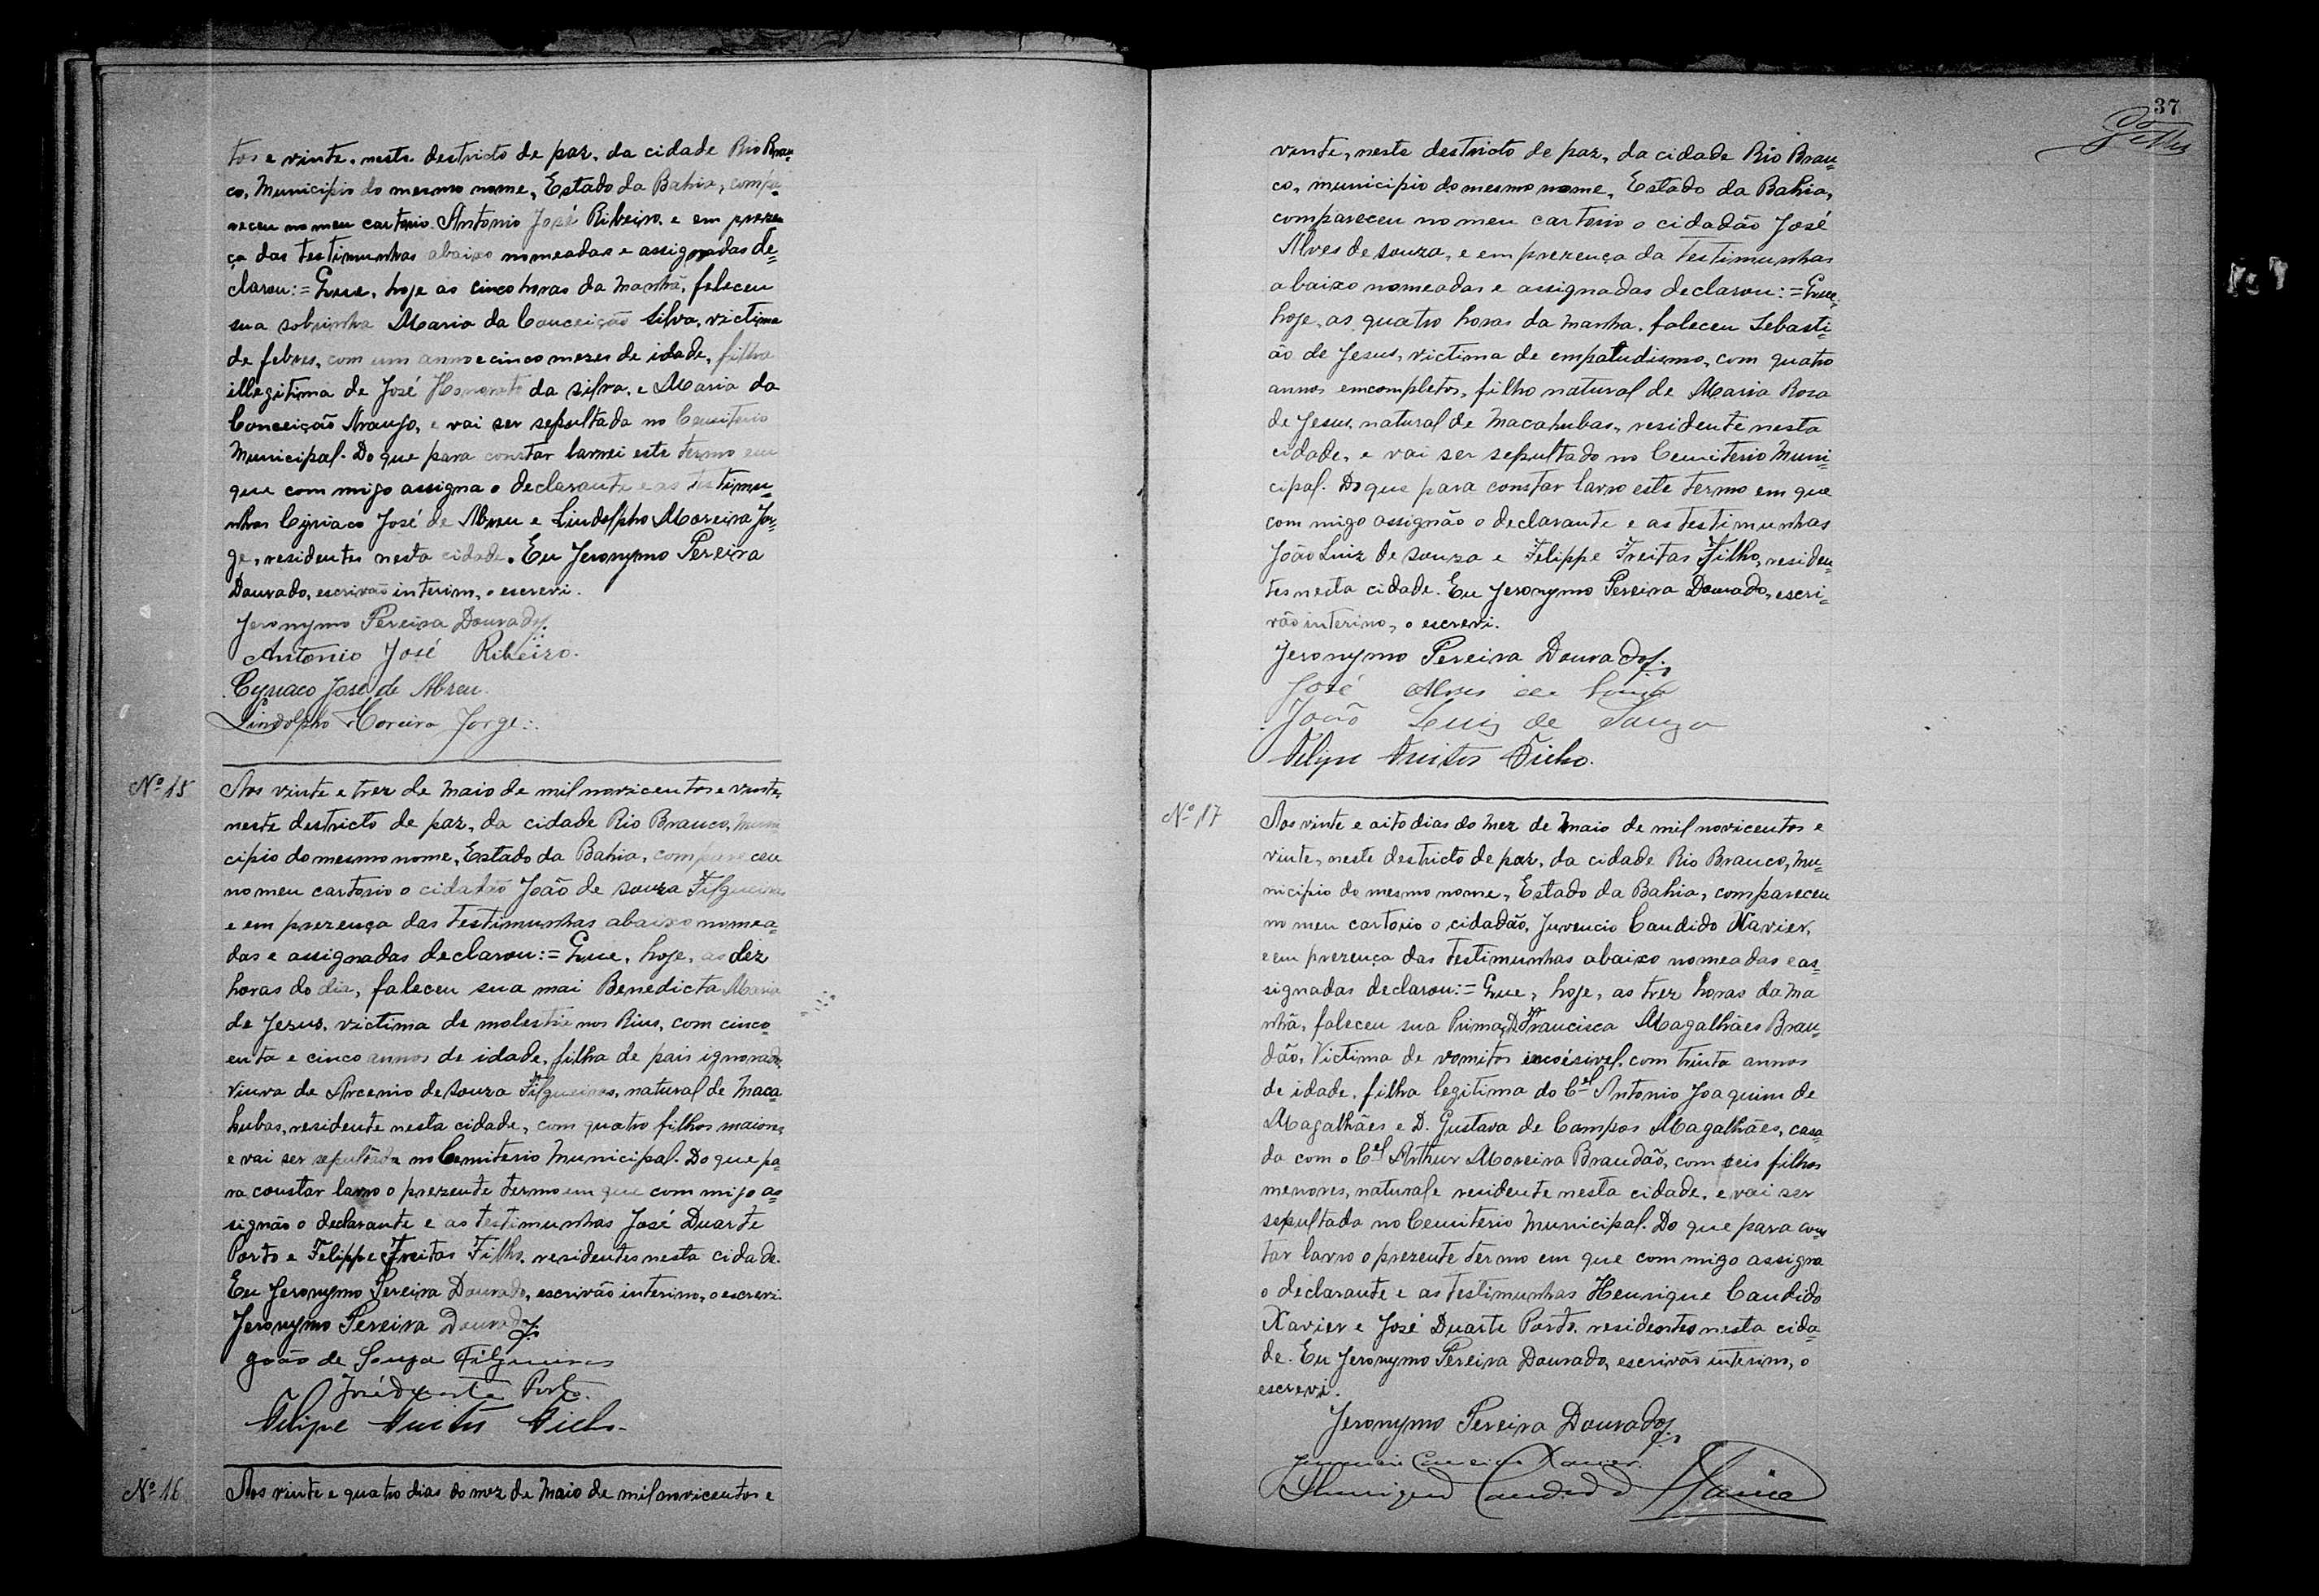 tos e vinte, neste destricto de paz, da cidade Rio Bran-
co, Municipio do mesmo nome, Estado da Bahia, compa-
receu no meu cartorio Antonio José Ribeiro, e em prezen
ça das testimunhas abaixo nomeadas e assignadas de-
clarou:= Que, hoje as cinco horas da manhã, faleceu
sua sobrinha Maria da Conceição Silva, victima
de febres, com um anno e cinco mezes de idade, filha
illegitima de José Honorato da silva, e Maria da
Conceição Araujo, e vai ser sepultada no Cemiterio
Municipal. Do que para constar lavrei este termo em
que com migo assigna o declarante e as testimu-
nhas Cyriaco José de Abreu e Lindolpho Moreira Jor-
ge, residentes nesta cidade. Eu Jeronymo Pereira
Dourado, escrivão interim, o escrevi.
Jeronymo Pereira Dourado
Antonio José Ribeiro.
Cyriaco José de Abreu.
Lindolpho Moreira Jorge
Nº 15
Aos vinte e trez de Maio de mil novicentos e vinte,
neste destricto de paz, da cidade Rio Branco, Muni
cipio do mesmo nome, Estado da Bahia, compareceu
no meu cartorio o cidadão João de souza Filgueiras
e em prezença das testimunhas abaixo nomea-
das e assignadas declarou:= Que, hoje, as dez
horas do dia, faleceu sua mai Benedicta Maria
de Jezus, victima de molestia nos Rius, com cinco-
enta e cinco annos de idade, filha de pais ignorados,
viuva de Arcenio de souza Filgueiras, natural de Maca-
hubas, residente nesta cidade, com quatro filhos maiores
e vai ser sepultada no Cemiterio Municipal. Do que pa-
ra constar lavro o prezente termo em que com migo as-
signão o declarante e as testimunhas José Duarte
Porto e Felippe Freitas Filho, residentes nesta cidade.
Eu Jeronymo Pereira Dourado, escrivão interino, o escrevi.
Jeronymo Pereira Dourado
João de Souza Filgueiras
José Duarte Porto.
Felipe Freitas Filho.
Nº 16
Aos vinte e quatro dias do mez de Maio de mil novicentos e
37
vinte, neste destricto de paz, da cidade Rio Bran-
co, municipio do mesmo nome, Estado da Bahia,
compareceu no meu cartorio o cidadão José
Alves de souza, e em prezença da testimunhas
abaixo nomeadas e assignadas declarou:= Que,
hoje, as quatro horas da manha, faleceu Sebasti-
ão de Jesus, victima de empaludismo, com quatro
annos emcompletos, filho natural de Maria Roza
de Jesus, natural de Macahubas, residente nesta
cidade, e vai ser sepultado no Cemiterio Muni-
cipal. Do que para constar lavro este termo em que
com migo assignão o declarante e as testimunhas
João Luiz de souza e Felippe Freitas Filho, residen-
tes nesta cidade. Eu Jeronymo Pereira Dourado, escri-
vão interino, o escrevi.
Jeronymo Pereira Dourado
José Alves de Souza
João Luiz de Souza
Felipe Freitas Filho.
Nº 17
Aos vinte e aito dias do mez de Maio de mil novicentos e
vinte, neste destricto de paz, da cidade Rio Branco, Mu-
nicipio do mesmo nome, Estado da Bahia, compareceu
no meu cartorio o cidadão, Juvencio Candido Xavier,
e em prezença das testimunhas abaixo nomeadas e as-
signadas declarou:= Que, hoje, as trez horas da Ma
nhã, faleceu sua Prima, D. Francisca Magalhães Bran-
dão, Victima de vomitos incoésivel, com trinta annos
de idade, filha legitima do Cel Antonio Joaquim de
Magalhães e D. Gustava de Campos Magalhães, casa-
da com o Cel Arthur Moreira Brandão, com seis filhos
menores, natural e residente nesta cidade, e vai ser
sepultada no Cemiterio Municipal. Do que para cons
tar lavro o prezente termo em que com migo assigna
o declarante e as testimunhas Henrique Candido
Xavier e José Duarte Porto, residentes nesta cida-
de. Eu Jeronymo Pereira Dourado, escrivão interim, o
escrevi.
Jeronymo Pereira Dourado
Juvencio Candido Xavier.
Henrique Candido Xavier